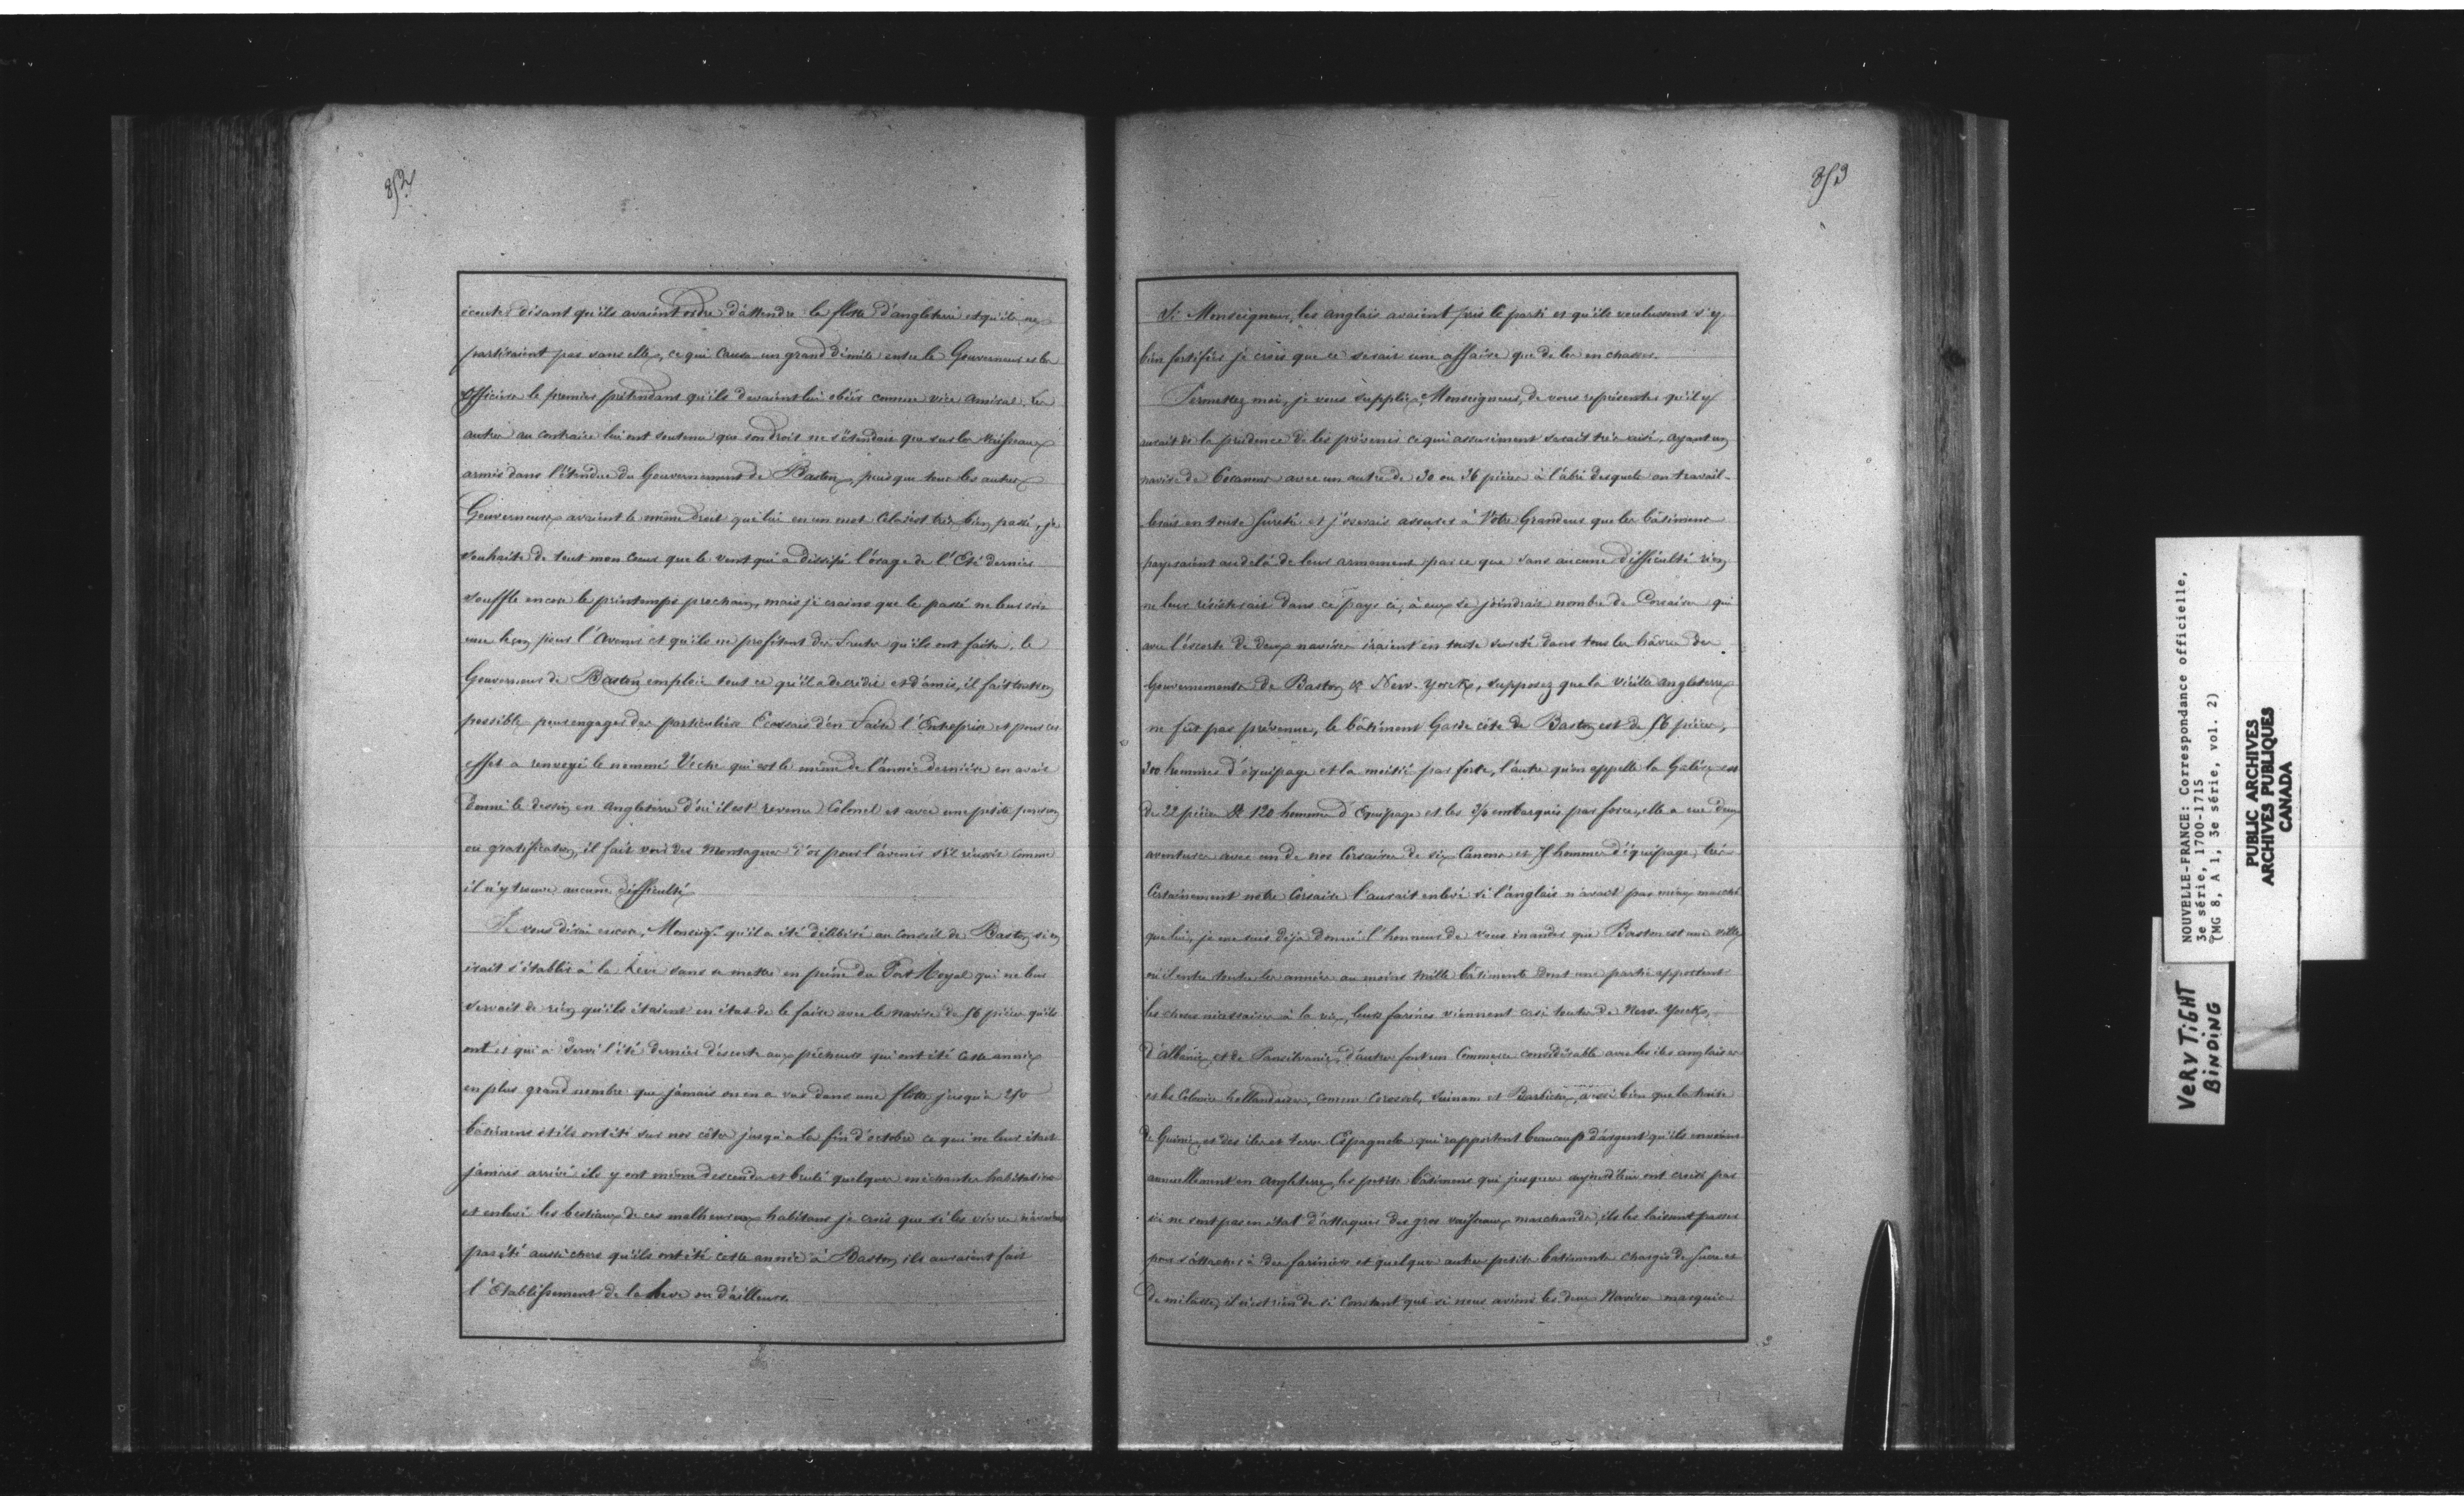 852
écouter disant qu'ils avaient ordre d'attendre la flotte d'angleterre et qu'ils ne
partiraient pas sans elle, ce qui causa un grand démêlé entre le Gouverneur et les
officiers le premier prétendant qu'ils devaient lui obéir comme vice amiral. Les
autres au contraire lui ont soutenu que son droit ne s'étendait que sur les Vaisseaux
armés dans l'étendue du Gouvernement de Baston, puisque tous les autres
Gouverneurs avaient le même droit que lui en un mot Cela s'est très bien passé, je
souhaite de tout mon Coeur que le vent qui a dissipé l'orage de l'Eté dernier
souffle encore le printemps prochain, mais je crains que le passé ne leur soit
une leçon pour l'Avenir et qu'ils ne profitent des fautes qu'ils ont faites, le
Gouverneur de Baston emploie tout ce qu'il a de crédit et d'amis, il fait tout son
possible pour engager des particuliers Ecossais d'en faire l'Entreprise et pour cet
effet a renvoyé le nommé Veche qui est le même de l'année dernière en avait
donné le dessin en Angleterre d'où il est revenu Colonel et avec une petite pension
ou gratification, il fait voir des Montagnes d'or pour l'avenir s'il réussit comme
il n'y trouve aucune difficulté
Je vous dirai encore, Monseigr qu'il a été délibéré au conseil de Baston si on
irait s'établir à la Leve sans se mettre en peine du Port Royal qui ne leur
servait de rien qu'ils étaient en état de le faire avec le navire de 56 pièces qu'ils
ont et qui a servi l'été dernier d'escorte aux pêcheurs qui ont été cette année
en plus grand nombre que jamais on en a vus dans une flotte jusqu'à 250
bâtimens et ils ont été sur nos côtes jusqu'à la fin d'octobre ce qui ne leur était
jamais arrivé ils y ont même descendu et brulé quelques méchantes habitations
et enlevé les bestiaux de ces malheureux habitans je crois que si les vivres n'avaient
pas été aussi chers qu'ils ont été cette année à Baston ils auraient fait
l'Etablissement de la Leve ou d'ailleurs.
853
Si Monseigneur, les anglais avaient pris le parti et qu'ils voulussent s'y
bien fortifier je crois que ce serait une affaire que de les en chasser.
Permettez moi, je vous supplie, Monseigneur, de vous représenter qu'il y
aurait de la prudence de les prévenir ce qui assurément serait très aisé, ayant un
navire de 60 canons avec un autre de 30 ou 36 pièces à l'abri desquels on travail-
lerait en toute sureté et j'oserais assurer à Votre Grandeur que les bâtimens
payeraient au delà de leur armement parce que sans aucune difficulté rien
ne leur résisterait dans ce pays ci, à eux se joindrait nombre de Corsaires qui
avec l'escorte de deux navires iraient en toute sureté dans tous les hâvres des
Gouvernements de Baston & New-Yorck, supposez que la vieille angleterre
ne fût pas prévenue, le bâtiment Garde côte de Baston est de 56 pièces,
300 hommes d'équipage et la moitié par force, l'autre qu'on appelle la Galère est
de 22 pièces & 120 hommes d'Equipage et les 3/4 embarqués par force, elle a eue deux
aventures avec un de nos Corsaires de six Canons et 75 hommes d'équipage, très
Certainement notre Corsaire l'aurait enlevé si l'anglais n'avait pas mieux marché
que lui, je me suis déjà donné l'honneur de vous mander que Baston est une ville
où il entre toutes les années au moins mille bâtiments dont une partie apportent
les choses nécessaires à la vie, leurs farines viennent casi toutes de New Yorck,
d'albanie et de Pansilvanie, d'autres font un Commerce considérable avec les iles anglaises
et les Colonies hollandaises, comme Corossol, Surinam et Barbiche, aussi bien que la traite
de Guinée et des iles et terre Espagnole qui rapportent beaucoup d'argent qu'ils envoient
annuellement en Angleterre, les petits bâtimens qui jusques aujourd'hui ont croisé par
ici ne sont pas en état d'attaquer des gros vaisseaux marchands, ils les laissent passer
pour s'attacher à des fariniers et quelques autres petits batiments chargés de sucre et
de mélasse, il n'est rien de si Constant que si nous avions les deux Navires marqués
NOUVELLE-FRANCE: Correspondance officielle,
3e série, 1700-1715
(MG 8, A 1, 3e série, vol. 2)
PUBLIC ARCHIVES
ARCHIVES PUBLIQUES
CANADA
VERY TiGHT
BiNDiNG